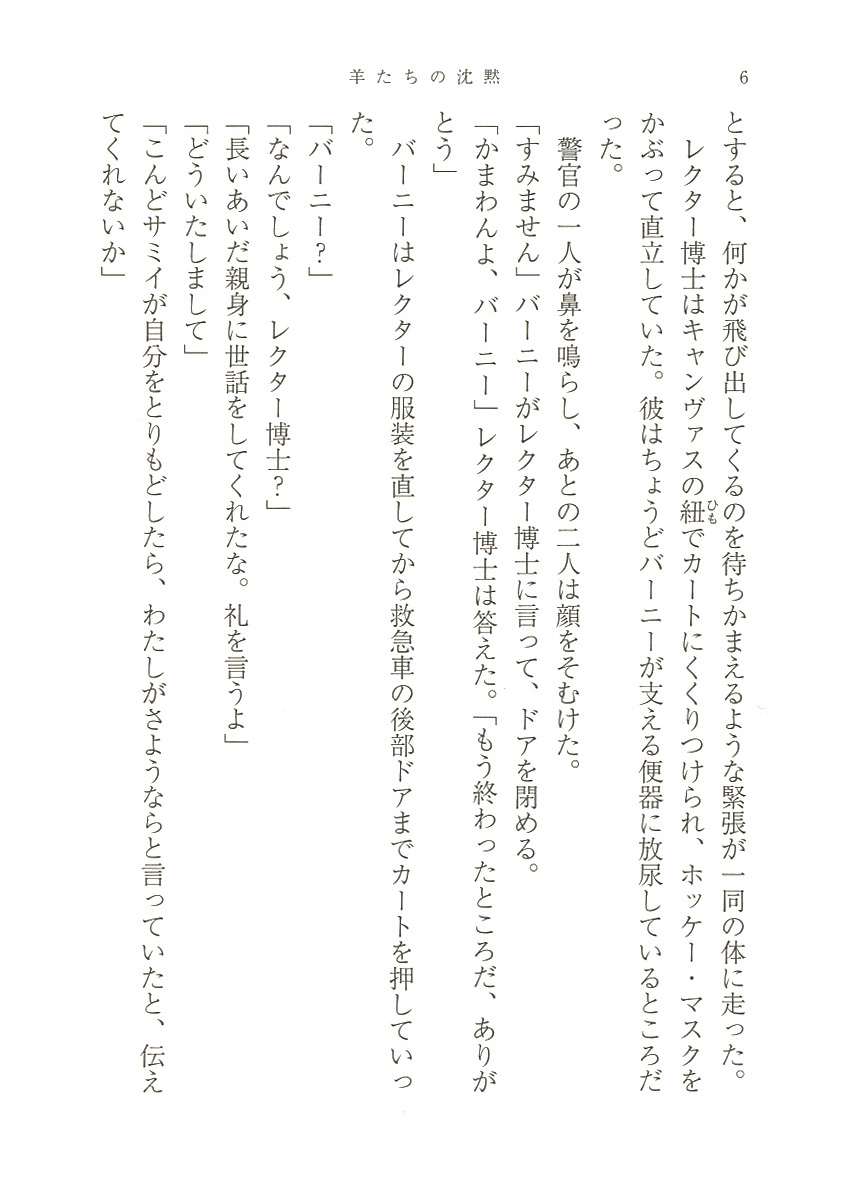 羊たちの沈黙
6
とすると、何かが飛び出してくるのを待ちかまえるような緊張が一同の体に走った。
レクター博士はキャンヴァスの紐でカートにくくりつけられ、ホッケー・マスクを
ひも
かぶって直立していた。彼はちょうどバーニーが支える便器に放尿しているところだ
った。
警官の一人が鼻を鳴らし、あとの二人は顔をそむけた。
「すみません」バーニーがレクター博士に言って、ドアを閉める。
「かまわんよ、バーニー」レクター博士は答えた。「もう終わったところだ、ありが
とう」
バーニーはレクターの服装を直してから救急車の後部ドアまでカートを押していっ
た。
「バーニー?」
「なんでしょう、レクター博士?」
「長いあいだ親身に世話をしてくれたな。礼を言うよ」
「どういたしまして」
「こんどサミイが自分をとりもどしたら、わたしがさようならと言っていたと、伝え
てくれないか」